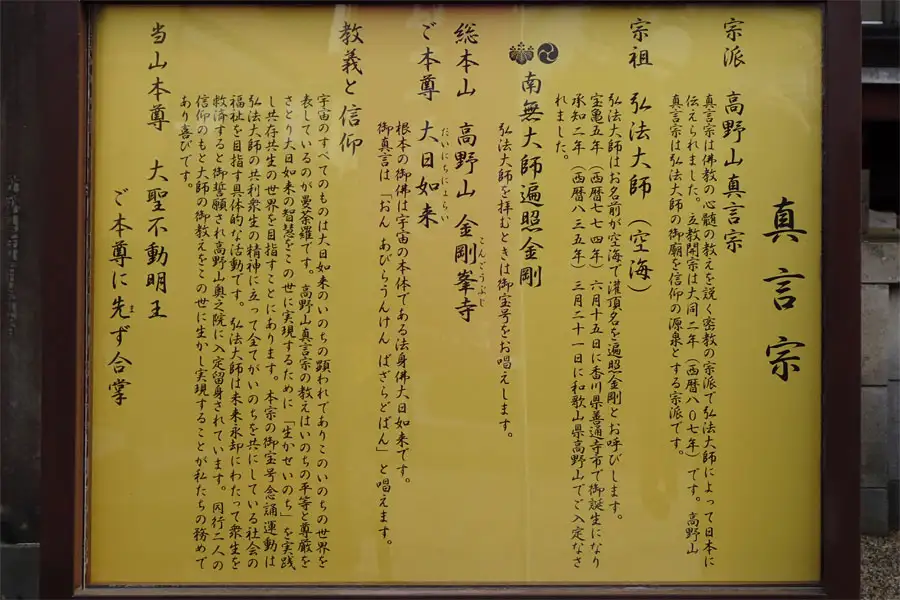 真言宗
宗派 高野山真言宗
真言宗は佛教の心髄の教えを説く密教の宗派で弘法大師によって日本に
伝えられました。立教開宗は大同二年(西暦八〇七年)です。高野山
真言宗は弘法大師の御廟を信仰の源泉とする宗派です。
宗祖 弘法大師(空海)
弘法大師はお名前が空海で灌頂名を遍照金剛とお呼びします。
宝亀五年(西暦七七四年)六月十五日に香川県善通寺市で御誕生になり
承知二年(西暦八三五年)三月二十一日に和歌山県高野山でご入定なさ
れました。
南無大師遍照金剛
弘法大師を拝むときは御宝号をお唱えします。
総本山 高野山 金剛峯寺
こんごうぶじ
ご本尊 大日如来
たいにちにょらい
根本の御佛は宇宙の本体である法身佛大日如来です。
御真言は「おん あびらうんけん ばざらどばん」と唱えます。
教義と信仰
宇宙のすべてのものは大日如来のいのちの顕われでありこのいのちの世界を
表しているのが曼荼羅です。高野山真言宗の教えはいのちの平等と尊厳を
さとり大日如来の智慧をこの世に実現するために「生かせいのち」を実践
し共存共生の世界を目指すことにあります。本宗の御宝号念誦運動は
弘法大師の共利衆生の精神に立って全てがいのちを共にしている社会の
福祉を目指す具体的な活動です。弘法大師は未来永却にわたって衆生を
救済すると御誓願され高野山奥之院に入定留身されています。同行二人の
信仰のもと大師の御教えをこの世に生かし実現することが私たちの務めで
あり喜びです。
当山本尊 大聖不動明王
ご本尊に先ず合掌
ま